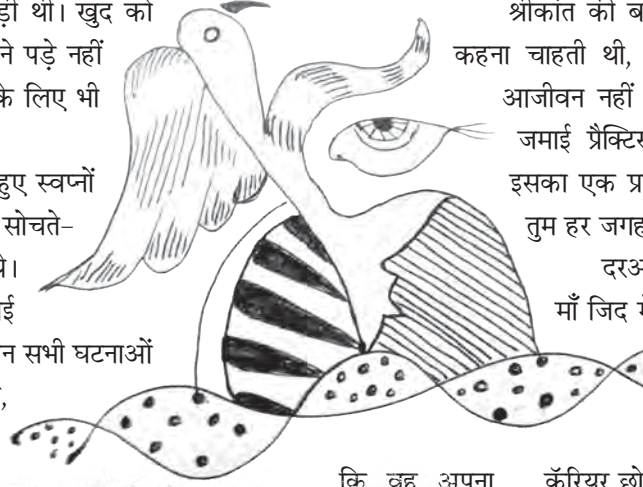 ड़ी थी। खुद को
ने पड़े नहीं
के लिए भी
हुए स्वप्नों
सोचते-
थे।
ई
न सभी घटनाओं
,
श्रीकांत की ब
कहना चाहती थी,
आजीवन नहीं
जमाई प्रैक्टिस
इसका एक प्र
तुम हर जगह
दरअ
माँ जिद में
कि वह अपना कॅरियर छो